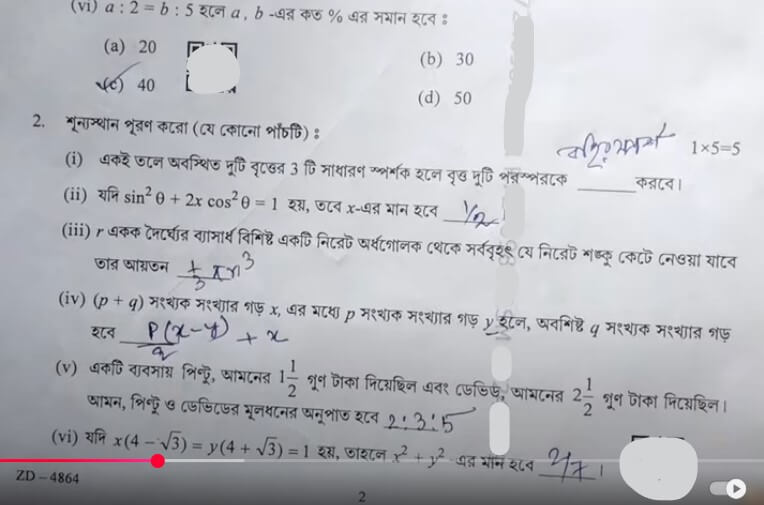 (vi) a : 2 = b : 5 হলে a, b -এর কত % এর সমান হবে :
(a) 20
(b) 30
(c) 40
(d) 50
2. শূন্যস্থান পূরণ করো (যে কোনো পাঁচটি) :
1×5=5
বহিঃস্পর্শ
(i) একই তলে অবস্থিত দুটি বৃত্তের 3 টি সাধারণ স্পর্শক হলে বৃত্ত দুটি পরস্পরকে ______ করবে।
(ii) যদি sin² θ + 2x cos² θ = 1 হয়, তবে x-এর মান হবে 1/2 ।
(iii) r একক দৈর্ঘ্যের ব্যাসার্ধ বিশিষ্ট একটি নিরেট অর্ধগোলক থেকে সর্ববৃহৎ যে নিরেট শঙ্কু কেটে নেওয়া যাবে
তার আয়তন 1/3 πr³
(iv) (p + q) সংখ্যক সংখ্যার গড় x, এর মধ্যে p সংখ্যক সংখ্যার গড় y হলে, অবশিষ্ট q সংখ্যক সংখ্যার গড়
হবে P(x-y)/q + x
(v) একটি ব্যবসায় পিন্টু, আমনের 1 1/2 গুণ টাকা দিয়েছিল এবং ডেভিড, আমনের 2 1/2 গুণ টাকা দিয়েছিল।
আমন, পিন্টু ও ডেভিডের মূলধনের অনুপাত হবে 2:3:5
(vi) যদি x(4 - √3) = y(4 + √3) = 1 হয়, তাহলে x² + y² -এর মান হবে ।
ZD – 4864
2